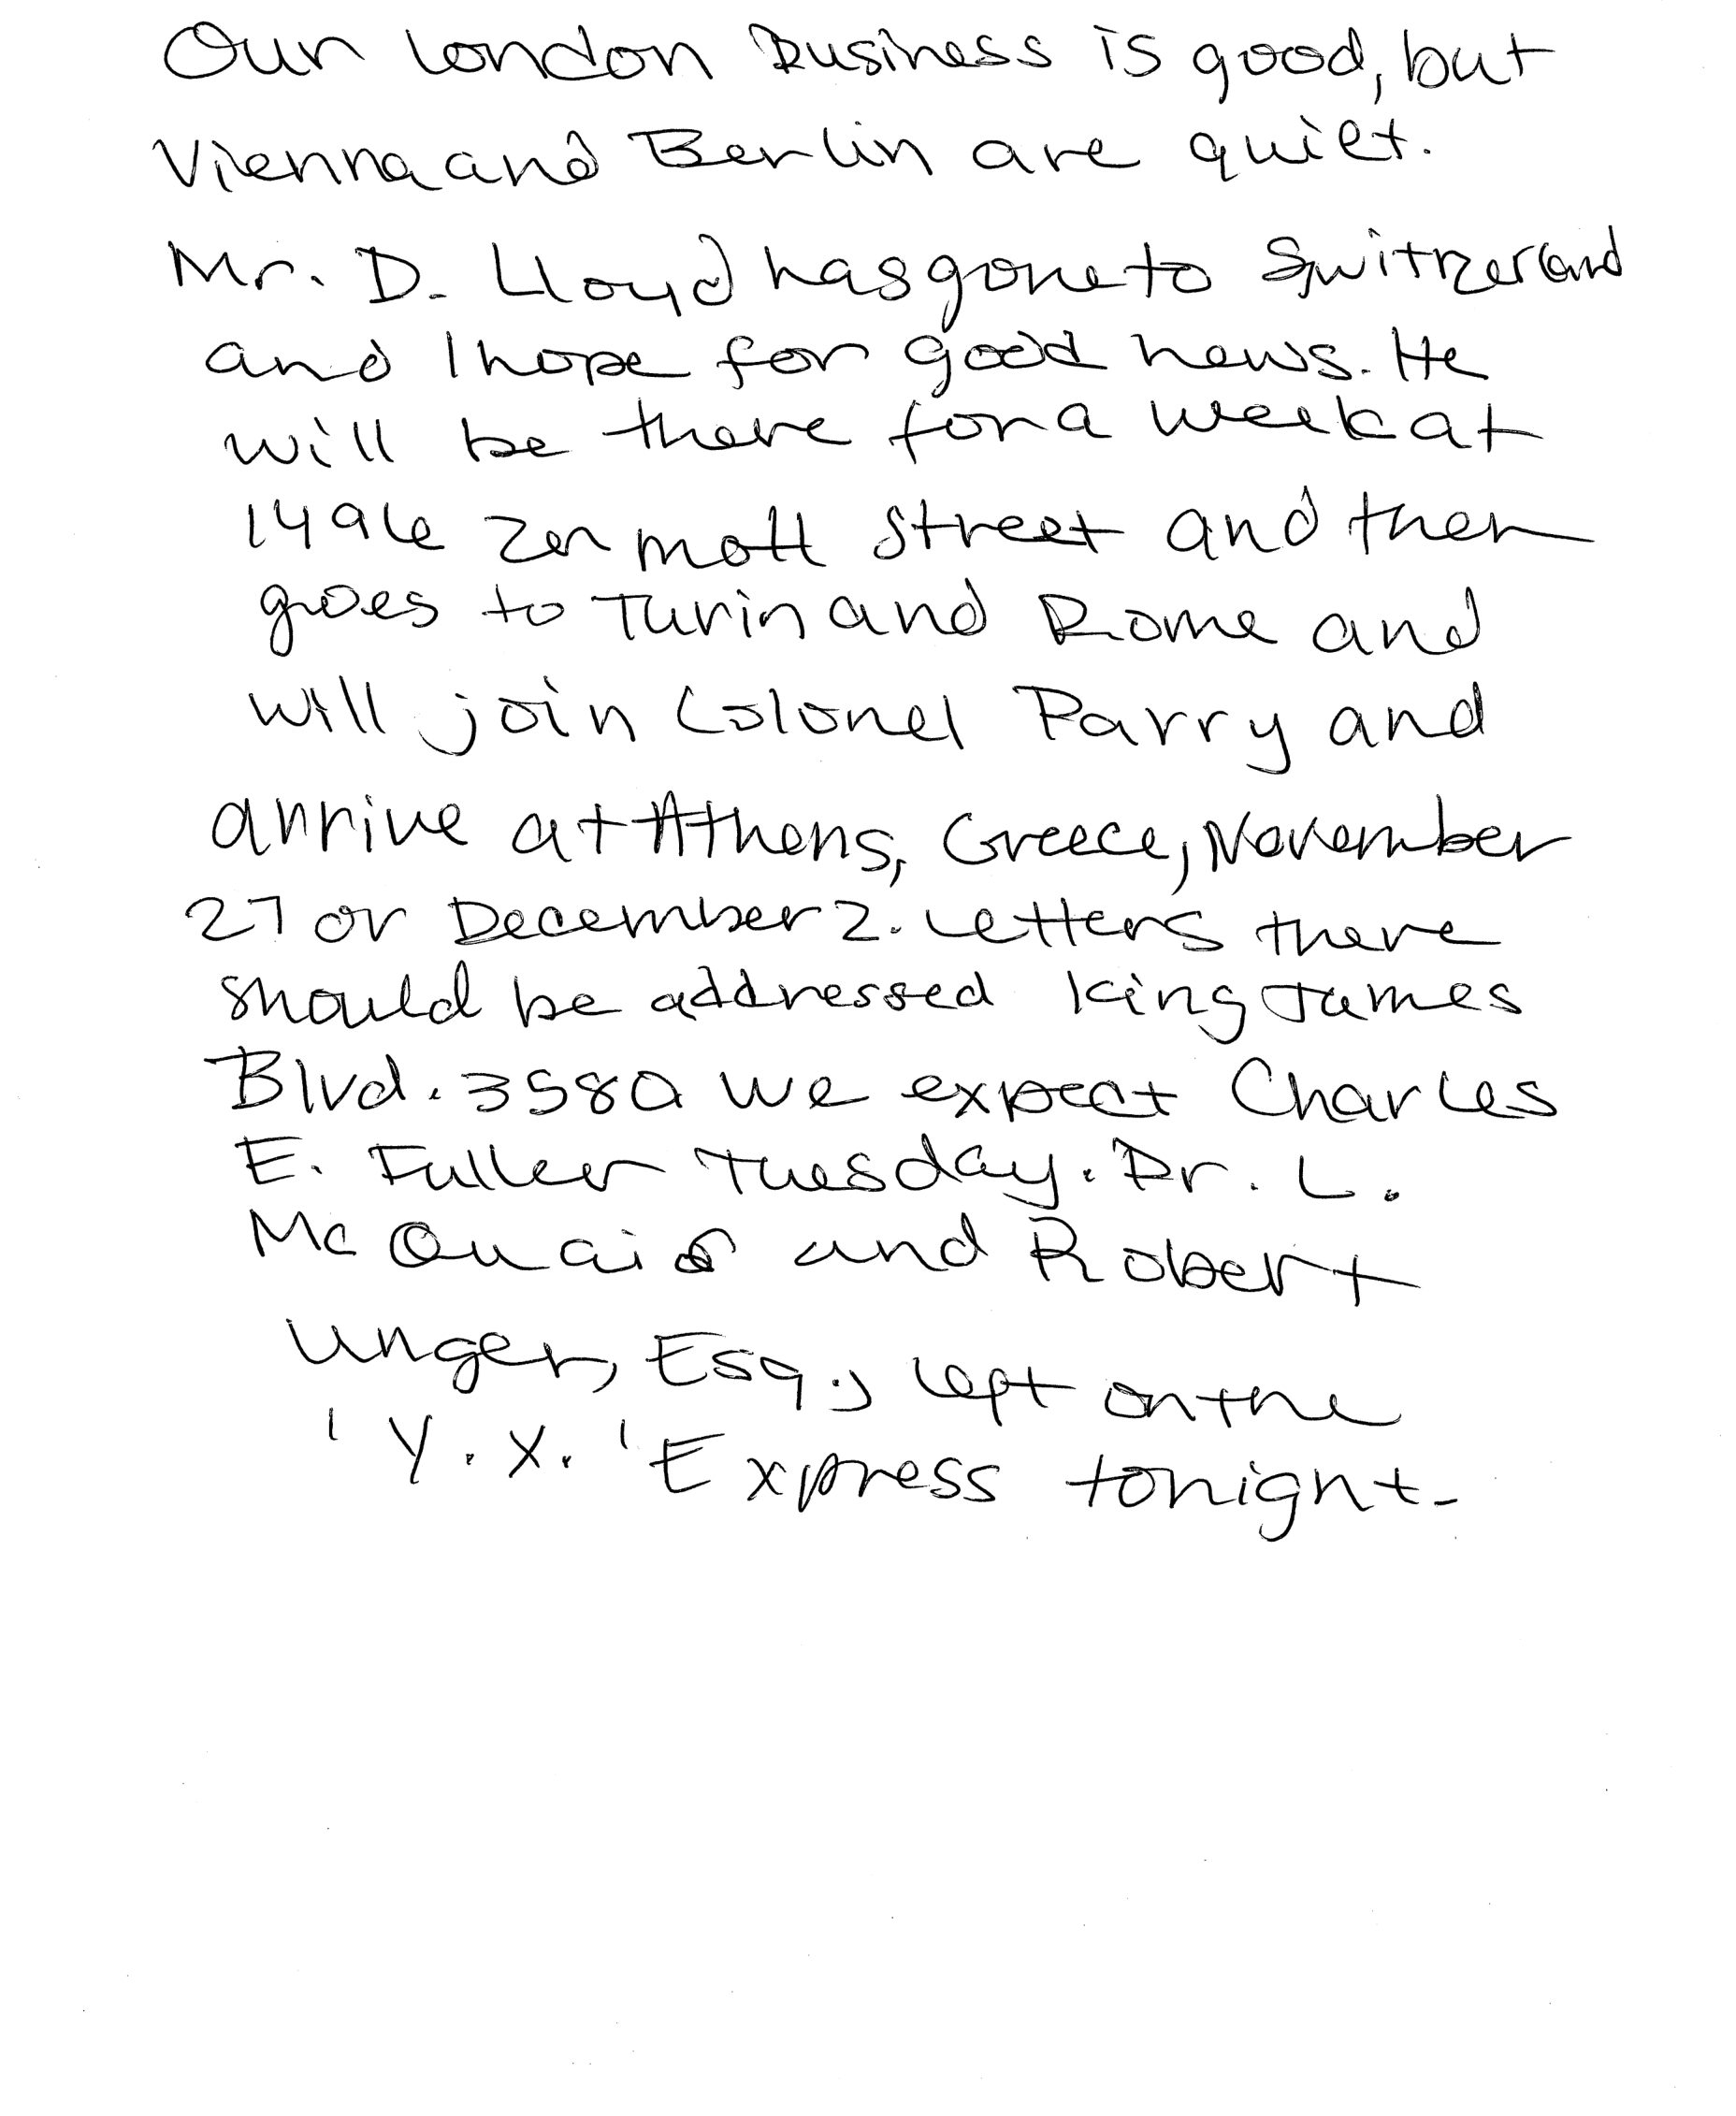 Our London Business is good, but
Vienna and Berlin are quiet.
Mr. D. Lloyd has gone to Switzerland
and I hope for good news. He
will be there for a week at
1496 Zermott Street and then
goes to Turin and Rome and
will join Colonel Parry and
arrive at Athens, Greece, November
27 or December 2. Letters there
should be addressed King James
Blvd. 3580 We expect Charles
E. Fuller Tuesday. Dr. L.
McQuaid and Robert
Unger, Esq., left on the
'Y.X.' Express tonight.